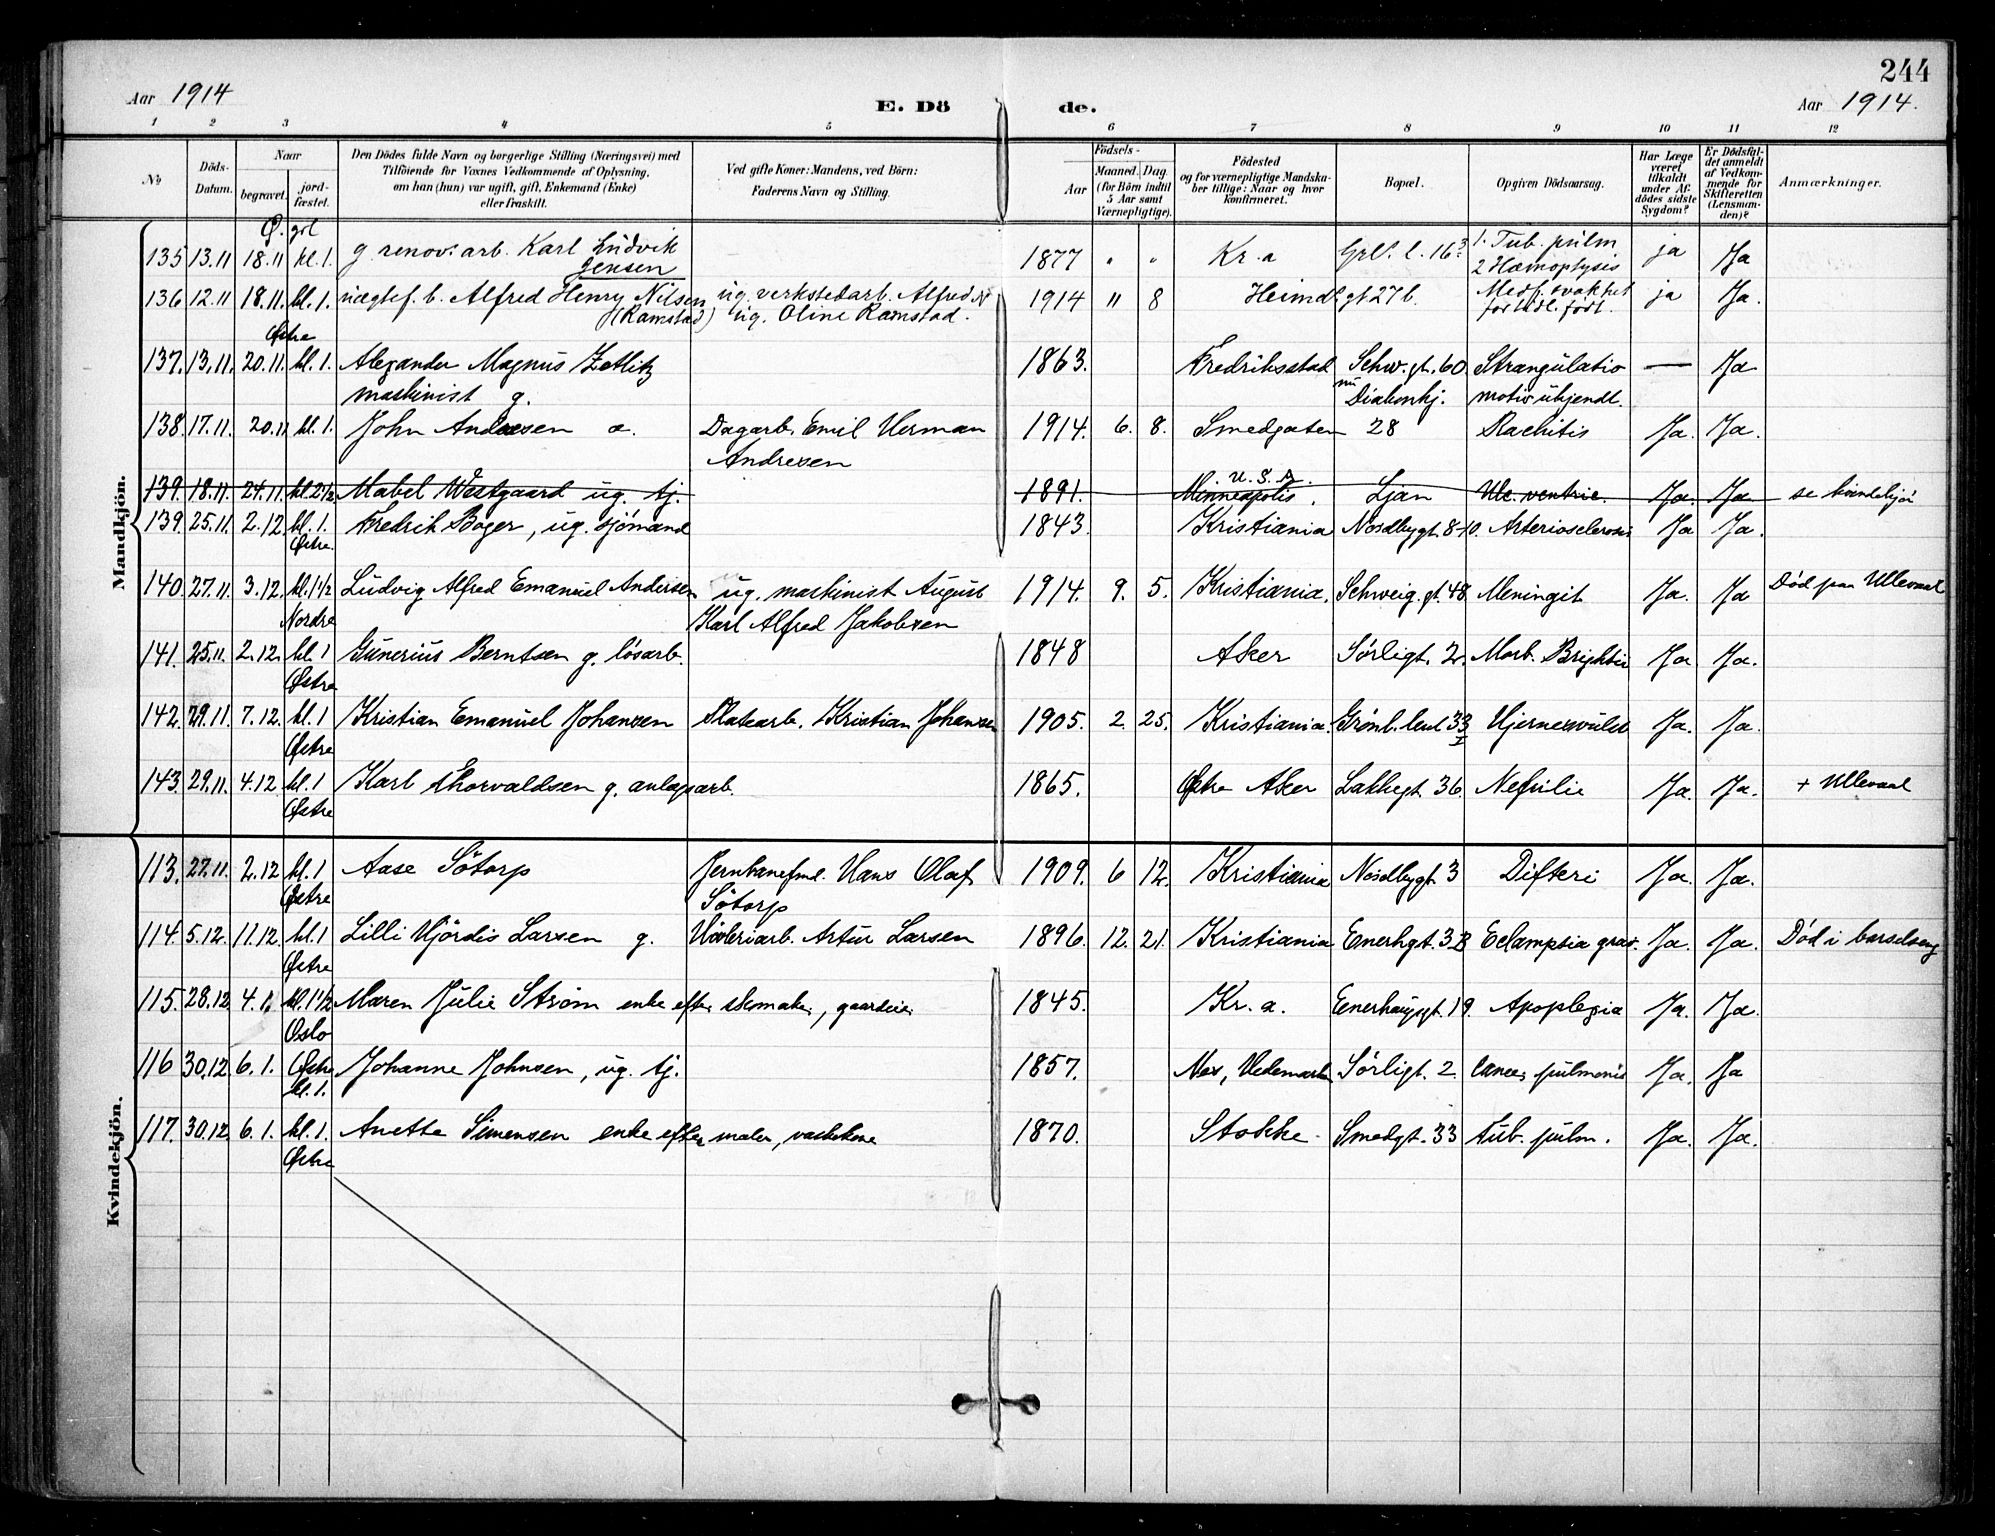 244
Aar 1914
E. Dö de.
Aar 1914.
1 2 3 4 5 6 7 8 9 10 11 12
No
Döds-Datum.
Naar
begravet.
jord-fæstet.
Den Dödes fulde Navn og borgerlige Stilling (Næringsvei) med
Tilföiende for Voxnes Vedkommende af Oplysning,
om han (hun) var ugift, gift, Enkemand (Enke)
eller fraskilt.
Ved gifte Koner: Mandens, ved Börn:
Faderens Navn og Stilling.
Födsels-
Aar
Maaned. Dag
(for Börn indtil
5 Aar samt
Værnepligtige).
Födested
og for værnepligtige Mandska-
ber tillige: Naar og hvor
konfirmeret.
Bopæl.
Opgiven Dödsaarsag.
Har Læge
været
tilkaldt
under Af-
dødes sidste
Sygdom?
Er Dödsfal-
det anmeldt
af Vedkom-
mende for
Skifteretten
(Lensman-
den)?
Anmærkninger.
Mandkjön.
135 13.11 18.11 kl. 1. g. renov. arb. Karl Ludvik 1877 " " Kr.a 1. Tub. pulm ja Ja
Jensen 2 Hæmoptysis
136 12.11 18.11. kl. 1. uægtef. b. Alfred Henry Nilsen ug. verkstedarb. Alfred N 1914 11 8 Heimdl.gt 27 b. Medf. svakhet ja Ja.
(Ramstad) ug. Oline Ramstad. for tidl. født.
Østre
137. 13.11. 20.11. kl. 1. Alexander Magnus Zetlitz 1863. Fredriksstad Schw. gt. 60 Strangulatio — Ja
maskinist g. nu Diakonhj. motiv ukjendt.
138. 17.11. 20.11 kl. 1. John Andresen a. Dagarb. Emil Herman 1914. 6. 8. Smedgaten 28 Rachitis Ja. Ja.
Andresen
139. 18.11. 24.11. kl. 2½ Mabel Westgaard ug. tj. 1891. U.S.A. Minneapolis. Ljan Ulc. ventric. Ja. Ja se kvindekjön
139. 25.11. 2.12. kl. 1. Fredrik Boger, ug. sjömand 1843. Kristiania Nordbygt. 8-10. Arteriosclerosis Ja Ja.
Østre.
140. 27.11. 3.12. kl. 1½ Ludvig Alfred Emanuel Andersen ug. maskinist August 1914. 9. 5. Kristiania. Schweig. gt. 48 Meningit Ja. Ja Död paa Ullevaal
Nordre Karl Alfred Jakobsen
141. 25.11. 2.12. kl. 1 Gunerius Berntsen g. lösarb. 1848 Aker Sörligt. 2. Morb. Brightii Ja Ja.
Østre
142. 29.11. 7.12. kl. 1 Kristian Emanuel Johansen Platearb. Kristian Johansen 1905. 2. 25. Kristiania. Grönl. leret 33 I Hjernesvulst Ja. Ja.
Østre
143. 29.11. 4.12. kl. 1 Karl Thorvaldsen g. anlægsarb. 1865. Østre Aker Lakkegt. 36. Nefritie Ja. Ja. + Ullevaal
Østre
Kvindekjön.
113. 27.11. 2.12 kl. 1 Aase Sötorp Jernbanefmd. Hans Olaf 1909. 6 12. Kristiania Nordbygt. 3 Difteri Ja. Ja.
Østre Sötorp
114. 5.12. 11.12. kl. 1 Lilli Hjördis Larsen g. Høvleriarb. Artur Larsen 1896. 12. 21. Kristiania Enerhgt. 3B Eclampsia grav. Ja. Ja. Död i barselseng
Østre
115. 28.12 4.1. kl. 1½ Maren Julie Ström enke efter skomaker, gaardeier 1845. Kr.a. Enerhauggt. 19. Apoplexia Ja. Ja.
Oslo
116 30.12. 6.1. Østre Johanne Johnsen, ug. tj. 1857. Nes, Hedemark Sörligt. 2. Cancer pulmonis Ja. Ja
kl. 1.
117. 30.12 6.1. kl. 1. Anette Simensen enke efter maler, vaskekone 1870. Stokke Smedgt. 33 tub. pulm. Ja. Ja.
Østre